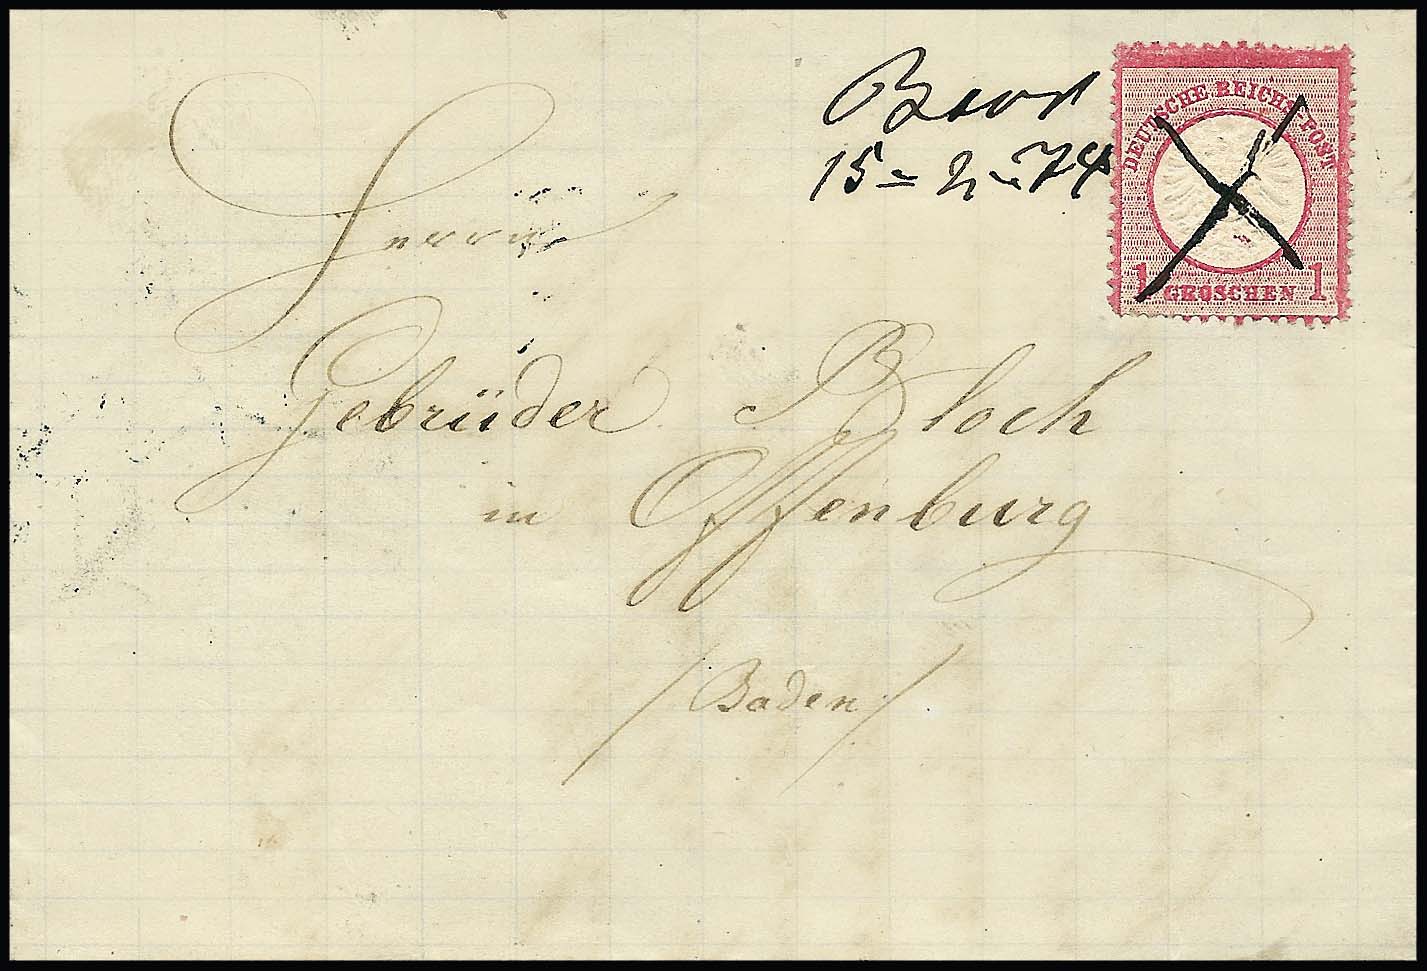 15 - 2 - 74
DEUTSCHE REICHS-POST
1 GROSCHEN 1
Herren
Gebrüder Bloch
in Offenburg
/Baden/